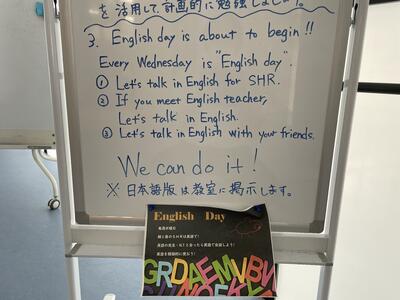 を活用して、計画的に勉強しましょう。
3. English day is about to begin!!
Every Wednesday is "English day".
① Let's talk in English for SHR.
② If you meet English teacher,
Let's talk in English.
③ Let's talk in English with your friends.
We can do it!
※ 日本語版は教室に掲示します。
English Day
毎週水曜日
朝と昼のSHRは英語で!
英語の先生・NTと会ったら英語で会話しよう!
英語を積極的に使おう!
GRDAEMVBW